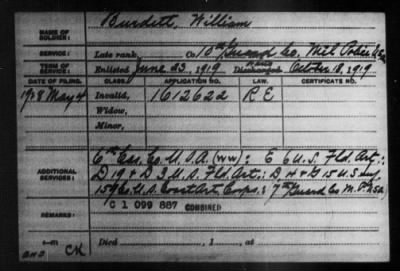 NAME OF SOLDIER: Burdett, William
SERVICE: Late rank, Co. 10th Guard Co. Mil. Police
TERM OF SERVICE: Enlisted June 23, 1919 Discharged October 18, 1919
DATE OF FILING. CLASS. APPLICATION NO. LAW. CERTIFICATE NO.
1928 May 4 Invalid, 1612622 R E
Widow,
Minor,
ADDITIONAL SERVICES: 6th Cas. Co. U.S.A. (WW); E 6 U.S. Fld. Art.;
D 19 & D 3 U.S. Fld. Art.; D, H & G 15 U.S. Inf.
159 Co. U.S. Coast Art. Corps.; 7th Guard Co. M.P.
C 1 099 887 COMBINED
CK
Died , 1 , at